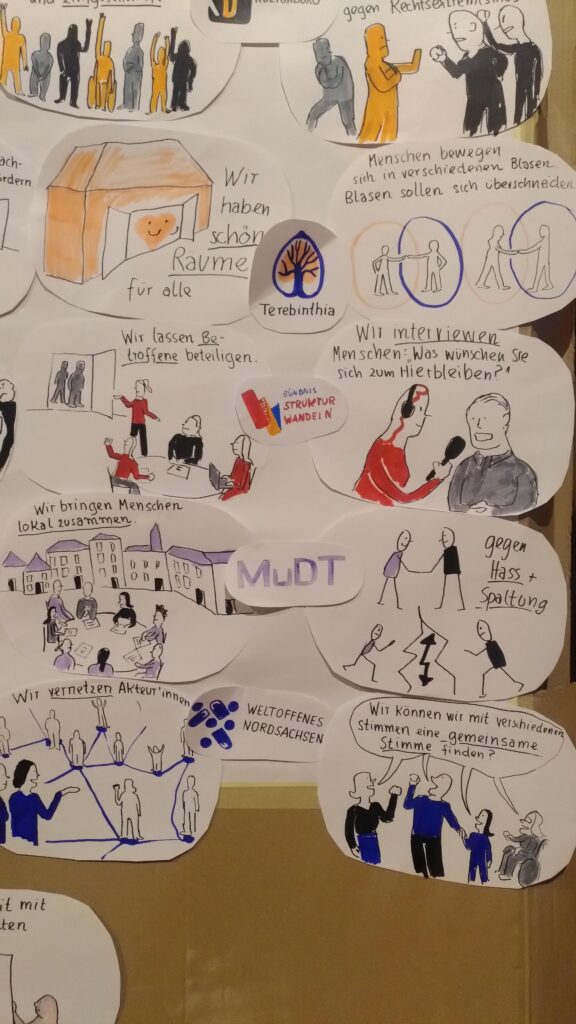 und
KULTURBÜRO
gegen Rechtsextremismus
Wir
haben
schöne
Räume
für alle
Terebinthia
Menschen bewegen
sich in verschiedenen Blasen.
Blasen sollen sich überschneiden
Wir lassen Be-
troffene beteiligen.
BÜNDNIS
STRUKTUR
WANDELN
Wir interviewen
Menschen: "Was wünschen Sie
sich zum Hierbleiben?"
Wir bringen Menschen
lokal zusammen.
MuDT
gegen
Hass +
Spaltung
Wir vernetzen Akteur*innen
WELTOFFENES
NORDSACHSEN
Wir können wir mit verschiedenen
Stimmen eine gemeinsame
Stimme finden?
mit